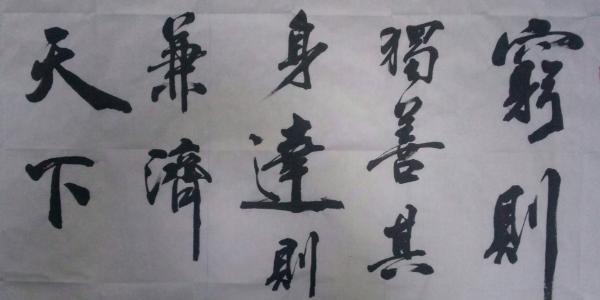 窮則
獨善其
身達則
兼濟
天下